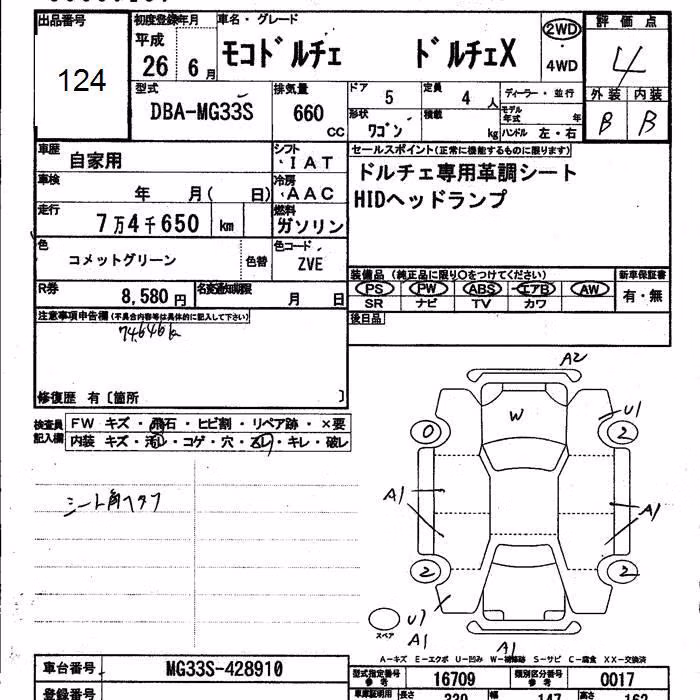 出品番号
124
初度登録年月
平成
26年 6月
車名・グレード
モコドルチェ ドルチェX
2WD
・
4WD
評価点
4
外装 内装
B B
型式
DBA-MG33S
排気量
660
CC
ドア
5
定員
4人
形状
ワゴン
積載
kg
ディーラー・並行
モデル年式 年
ハンドル 左・右
車歴
自家用
シフト
・IAT
車検
年 月( 日)
冷房
・AAC
走行
7万4千650 km
燃料
ガソリン
色
コメットグリーン
色替
色コード
ZVE
R券
8,580円
名変通知期限
月 日
セールスポイント(正常に機能するものに限ります)
ドルチェ専用革調シート
HIDヘッドランプ
装備品(純正品に限り○をつけてください)
PS PW ABS エアB AW
SR ナビ TV カワ
新車保証書
有・無
後日品
注意事項申告欄(不具合内容等は具体的に記入して下さい)
74646k
修復歴 有〔箇所 〕
検査員
記入欄
FW キズ・飛石・ヒビ割・リペア跡・×要
内装 キズ・汚レ・コゲ・穴・スレ・キレ・破レ
A2
W
U1
2
A1
A1
2
2
U1
A1
スペア
A1
A-キズ E-エクボ U-凹み W-補修跡 S-サビ C-腐食 XX-交換済
車台番号
MG33S-428910
登録番号
型式指定番号
参考
16709
類別区分番号
参考
0017
車庫証明用
長さ
幅
147
高さ